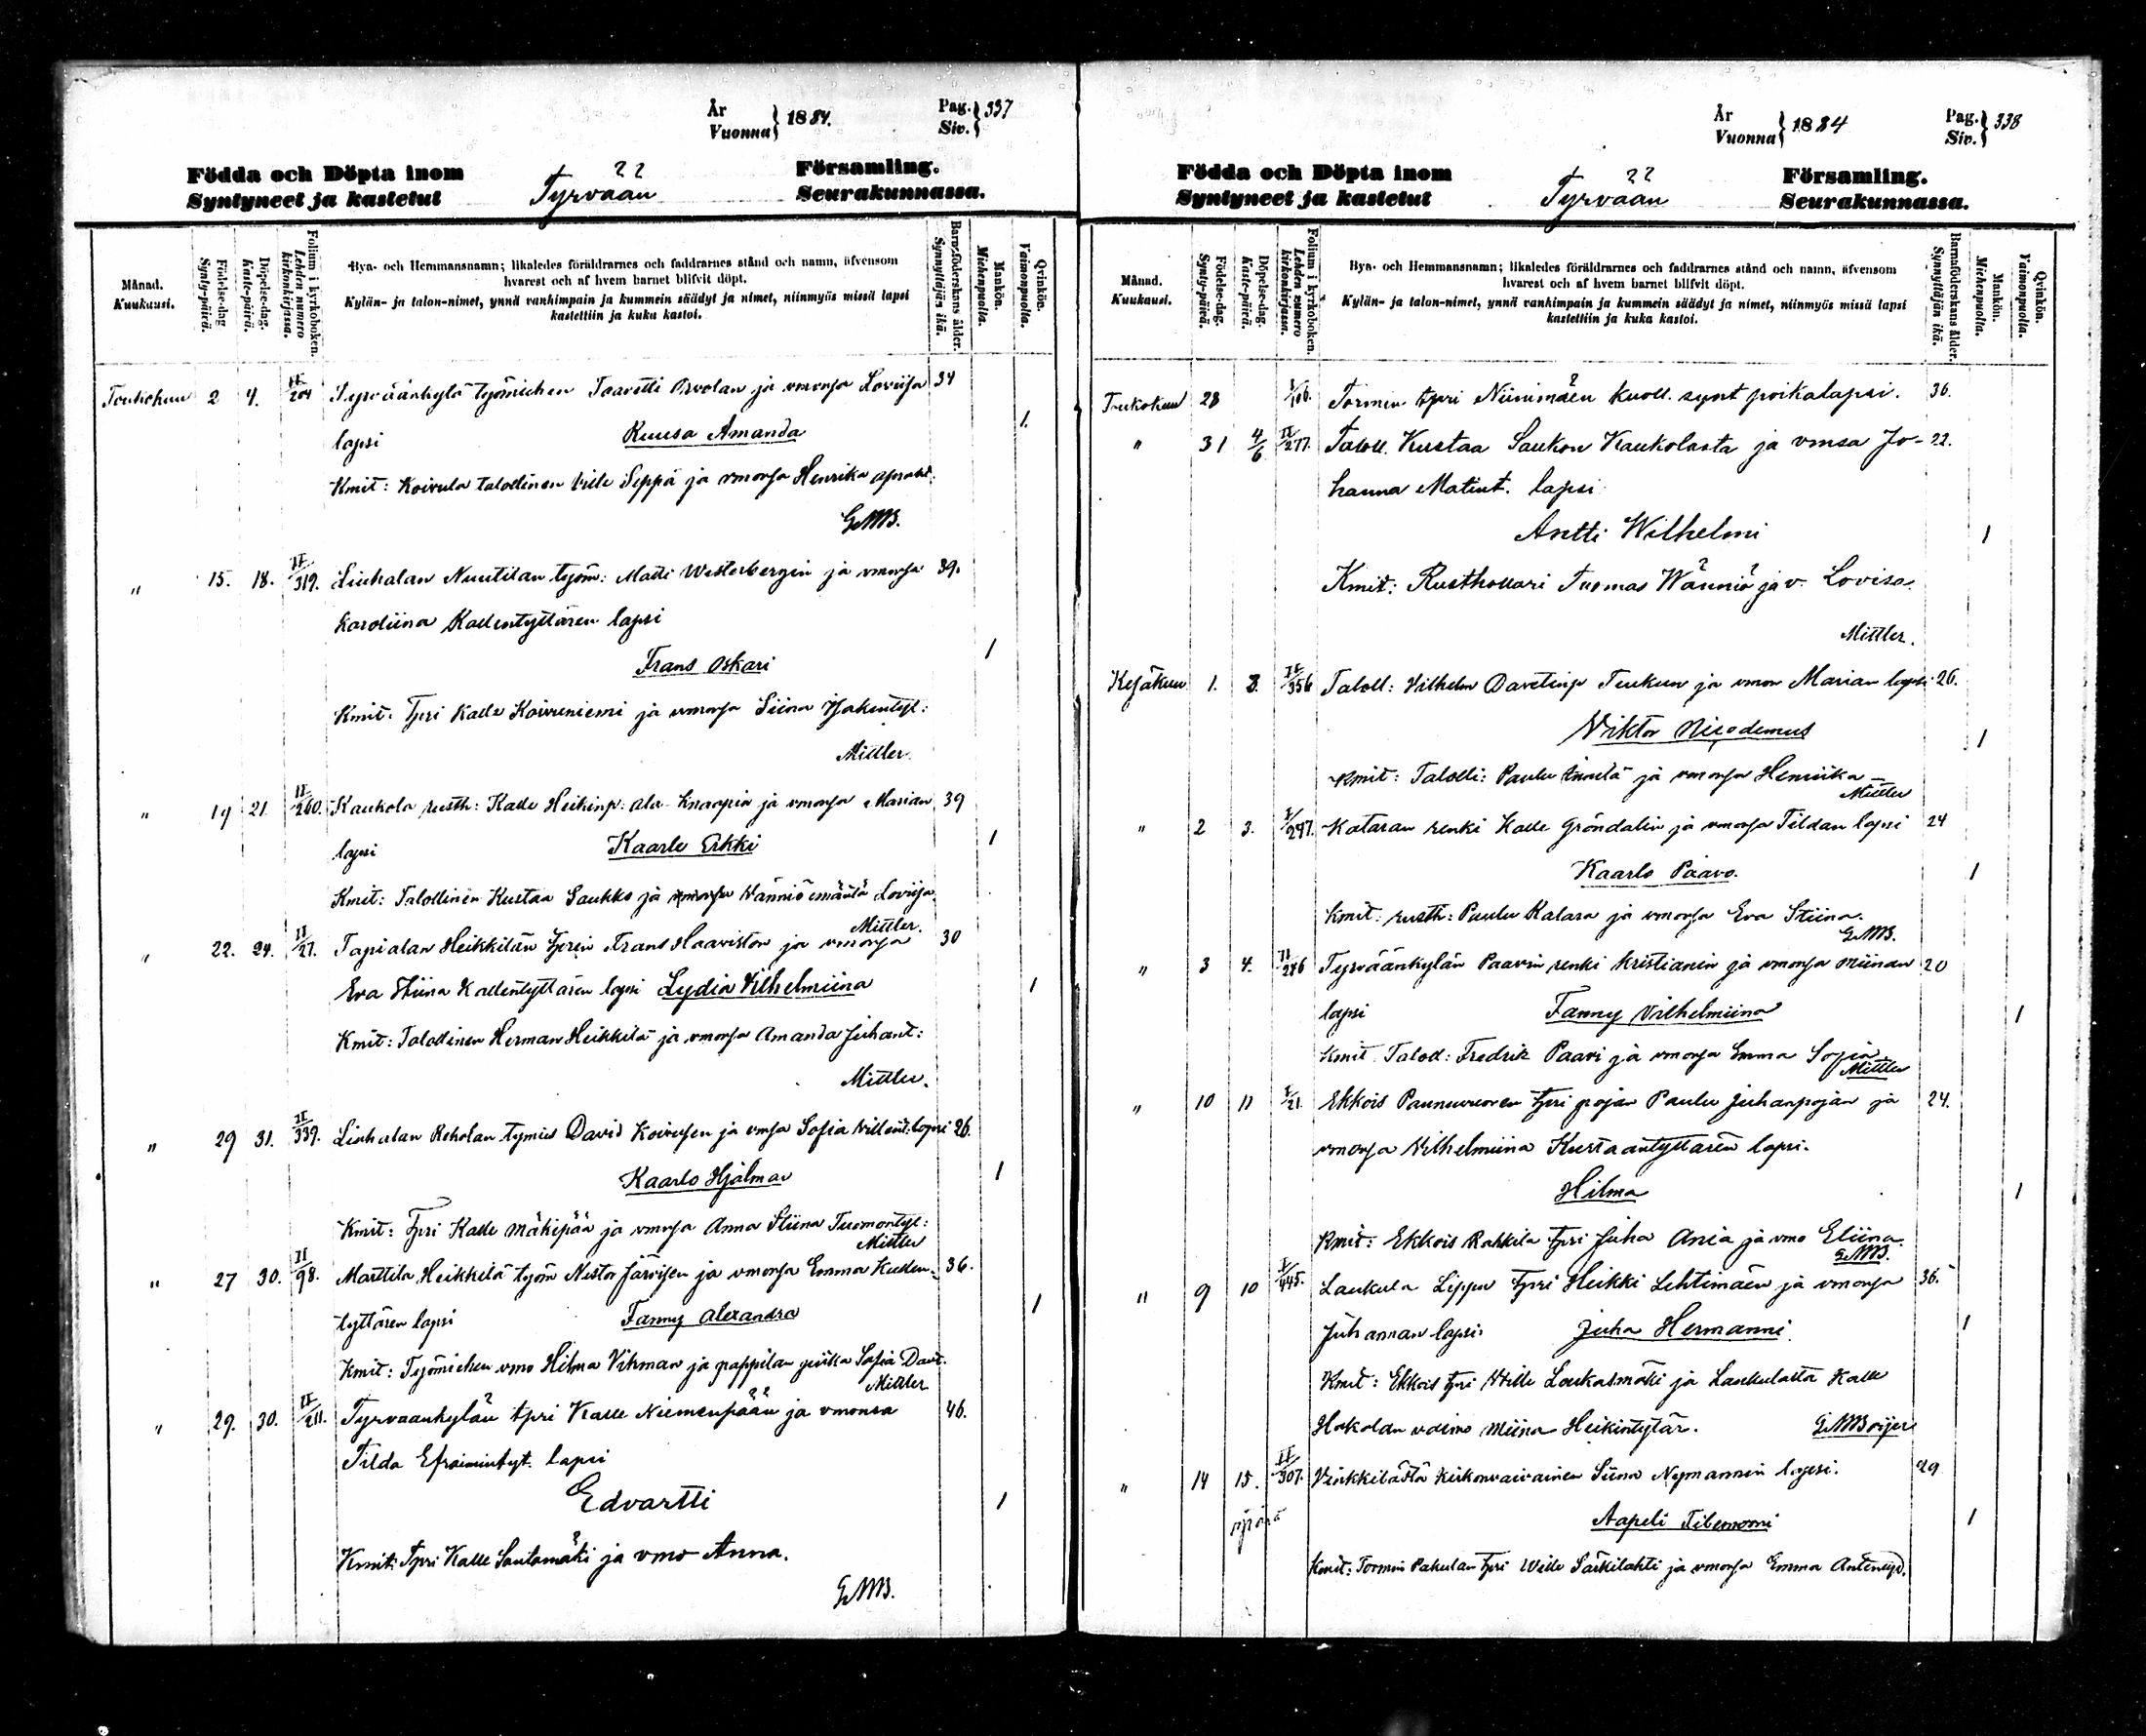 År
Vuonna } 1884.
Pag.
Siv. } 337
Födda och Döpta inom
Syntyneet ja kastetut
Tyrvään
Församling.
Seurakunnassa.
Månad.
Kuukausi.
Födelse-dag
Synty-päivä.
Döpelse-dag.
Kaste-päivä.
Folium i kyrkoboken.
Lehden numero kirkonkirjassa.
Bya- och Hemmansnamn; likaledes föräldrarnes och faddrarnes stånd och namn, äfvensom
hvarest och af hvem barnet blifvit döpt.
Kylän- ja talon-nimet, ynnä vanhimpain ja kummein säädyt ja nimet, niinmyös missä lapsi
kastettiin ja kuka kastoi.
Barnaföderskans ålder.
Synnyttäjän ikä.
Mankön.
Miehenpuolta.
Qvinkön.
Vaimonpuolta.
Toukokuu 2 4. II/204 Tyrväänkylä työmiehen Taavetti ja vmonsa Loviisa 34
lapsi Ruusa Amanda 1
Kmit: Koivula talollinen Ville Seppä ja vmonsa Henrika
GMB.
" 15. 18. II/319. Liuhalan Nuutilan työm: Matti Westerbergin ja vmonsa 39.
Karoliina Kallentyttären lapsi
Frans Oskari 1
Kmit: Tpri Kalle Koivuniemi ja vmonsa Siina
Mittler.
" 19 21. II/260. Kaukola rusth: Kalle Heikinp: ala-Knaapin ja vmonsa Marian 39
lapsi Kaarle Erkki 1
Kmit: Talollinen Kustaa Saukko ja Wänniö emäntä Loviisa.
Mittler.
" 22. 24. II/27. Tapialan Heikkilän tprin Frans Haaviston ja vmonsa 30
Eva Stiina Kallentyttären lapsi Lydia Vilhelmiina 1
Kmit: Talollinen Herman Heikkilä ja vmonsa Amanda Juhant:
Mittler.
" 29 31. II/339. Liuhalan Reholan David Koivusen ja vmsa Sofia lapsi 26.
Kaarlo Hjalmar 1
Kmit: Tpri Kalle Mäkipää ja vmonsa Anna Stiina Tuomontyt:
Mittler
" 27 30. II/98. Marttila Heikkilä työm Nestor Järvisen ja vmonsa Emma Kallen- 36.
tyttären lapsi Fanny Alexandra 1
Kmit: Työmiehen vmo Hilma Vihman ja pappilan piika Sofia Davt.
Mittler
" 29. 30. II/211. Tyrväänkylän tpri Kalle Niemenpään ja vmonsa 46.
Tilda Efraimintyt. lapsi
Edvartti 1
Kmit: Tpri Kalle Santamäki ja vmo Anna.
GMB.
År
Vuonna } 1884
Pag.
Siv. } 338
Födda och Döpta inom
Syntyneet ja kastetut
Tyrvään
Församling.
Seurakunnassa.
Månad.
Kuukausi.
Födelse-dag.
Synty-päivä.
Döpelse-dag.
Kaste-päivä.
Folium i kyrkoboken.
Lehden numero kirkonkirjassa.
Bya- och Hemmansnamn; likaledes föräldrarnes och faddrarnes stånd och namn, äfvensom
hvarest och af hvem barnet blifvit döpt.
Kylän- ja talon-nimet, ynnä vanhimpain ja kummein säädyt ja nimet, niinmyös missä lapsi
kastettiin ja kuka kastoi.
Barnaföderskans ålder.
Synnyttäjän ikä.
Mankön.
Miehenpuolta.
Qvinkön.
Vaimonpuolta.
Toukokuu 28 Tormin tpri Niinimäen kuoll. synt poikalapsi. 36.
" 31 4/6 II/277. Taloll. Kustaa Saukon Kaukolasta ja vmsa Jo- 22.
hanna Matint. lapsi
Antti Wilhelmi 1
Kmit: Rusthollari Tuomas Wänniö ja v. Lovisa.
Mittler.
Kesäkuu 1. 8. II/356 Taloll: Vilhelm Davetinp Tuukun ja vmon Marian lapsi 26.
Viktor Nicodemus 1
Kmit: Talolli: Paulu ja vmonsa Henriika
Mittler
" 2 3. I/247. Kataran renki Kalle Gröndalin ja vmonsa Tildan lapsi 24
Kaarlo Paavo. 1
Kmit: rusth: Paulu Kalara ja vmonsa Eva Stiina.
GMB.
" 3 4. II/246 Tyrväänkylän Paavin renki Kristianin ja vmonsa Miinan 20
lapsi Fanny Vilhelmiina 1
Kmit Taloll: Fredrik Paavi ja vmonsa Emma Sofia
Mittler
" 10 11 I/21. Ekkois Paunuvuoren tpri pojan Paulu Juhanpojan ja 24.
vmonsa Vilhelmiina Kustaantyttären lapsi.
Hilma 1
Kmit: Ekkois Rahkila tpri Juha Ania ja vmo Eliina.
GMB.
" 9 10 I/445. Laukula Lippu tpri Heikki Lehtimäen ja vmonsa 36.
Juhannan lapsi Juha Hermanni 1
Kmit: Ekkois tpri Ville Laukasmäki ja Laukulasta Kalle
Hakalan vaimo Miina Heikintytär. GMBoijer
" 14 15. II/307. Vinkkilästä kirkonvaivainen Siina Nymannin lapsi. 29
Aapeli 1
Kmit: Tormin Pakulan tpri Ville Särkilahti ja vmonsa Emma